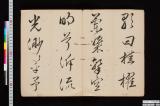 歌曰桂櫂
兮蘭槳擊空
明兮泝流
光渺々兮予